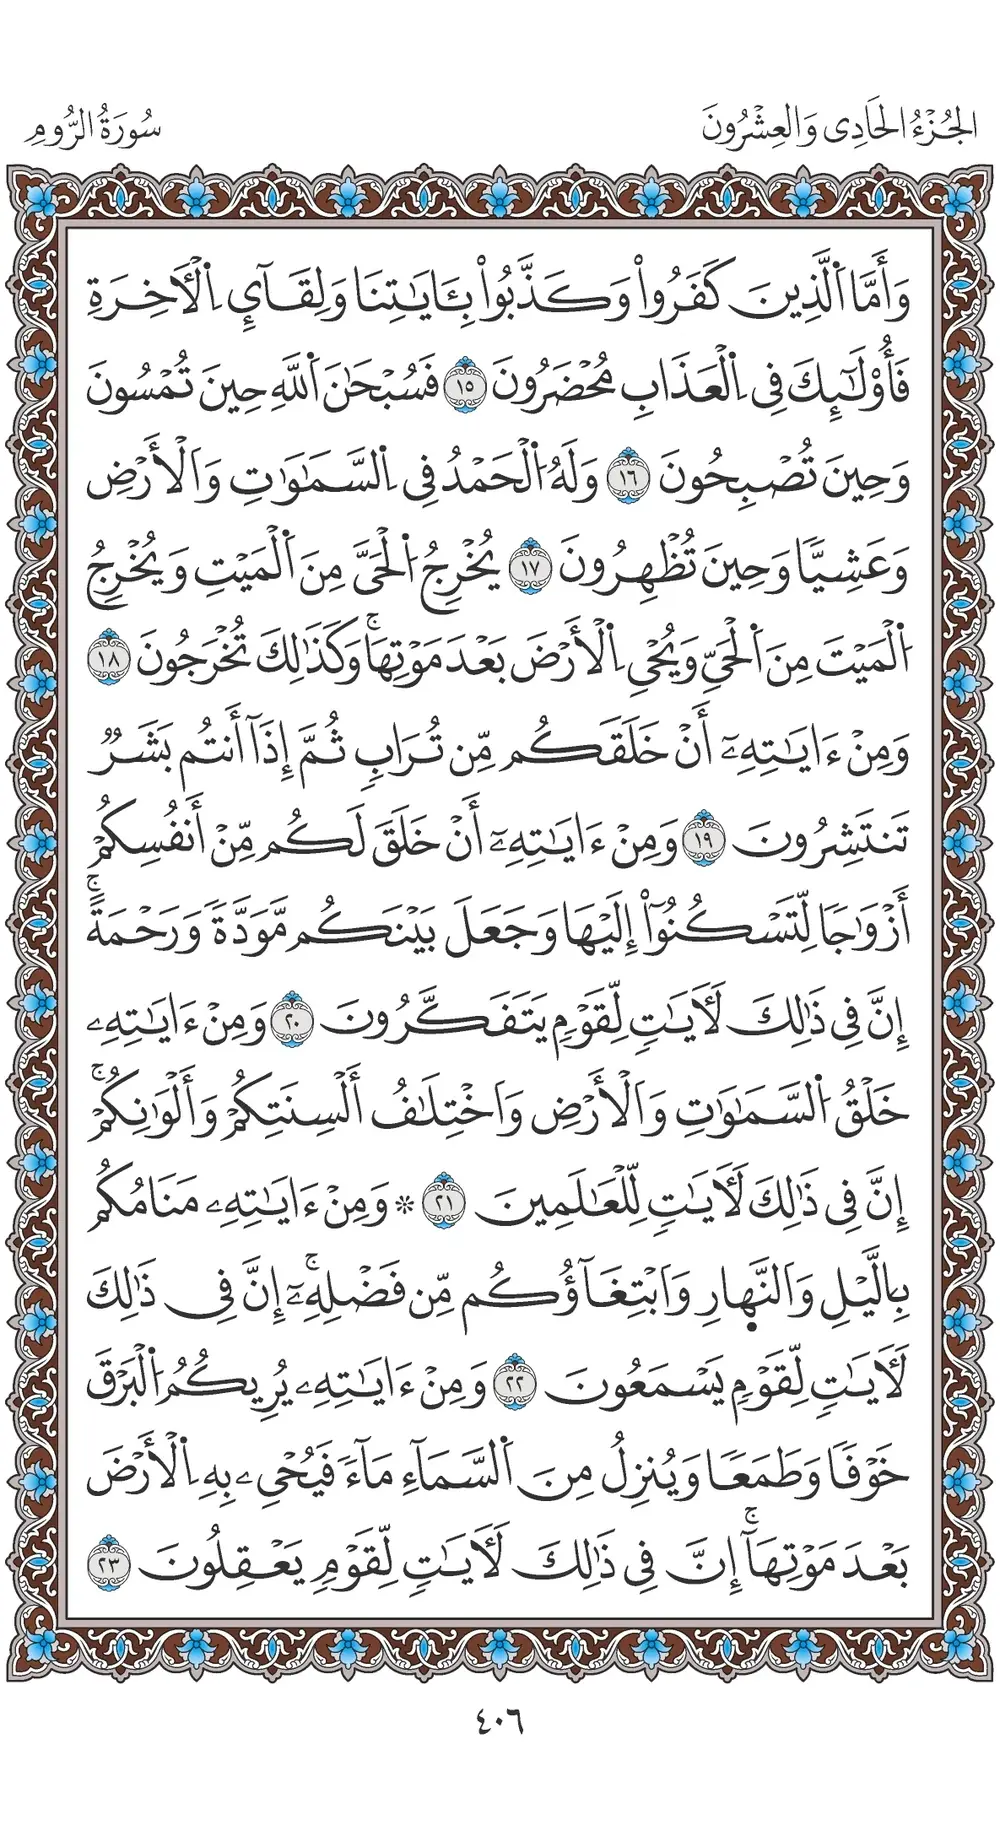 الجُزْءُ الحَادِي وَالعِشْرُونَ
سُورَةُ الرُّومِ
وَأَمَّا اَ۬لَّذِينَ كَفَرُواْ وَكَذَّبُواْ بِـَٔايَٰتِنَا وَلِقَآيِٕ اِ۬لۡأٓخِرَةِ
فَأُوْلَٰٓئِكَ فِي اِ۬لۡعَذَابِ مُحۡضَرُونَ ١٥ فَسُبۡحَٰنَ اَ۬للَّهِ حِينَ تُمۡسُونَ
وَحِينَ تُصۡبِحُونَ ١٦ وَلَهُ اُ۬لۡحَمۡدُ فِي اِ۬لسَّمَٰوَٰتِ وَالۡأَرۡضِ
وَعَشِيّٗا وَحِينَ تُظۡهِرُونَ ١٧ يُخۡرِجُ اُ۬لۡحَيَّ مِنَ اَ۬لۡمَيۡتِ وَيُخۡرِجُ
اُ۬لۡمَيۡتَ مِنَ اَ۬لۡحَيِّ وَيُحۡيِ اِ۬لۡأَرۡضَ بَعۡدَ مَوۡتِهَاۚ وَكَذَٰلِكَ تُخۡرَجُونَ ١٨
وَمِنۡ ءَايَٰتِهِۦٓ أَنۡ خَلَقَكُم مِّن تُرَابٖ ثُمَّ إِذَآ أَنتُم بَشَرٞ
تَنتَشِرُونَ ١٩ وَمِنۡ ءَايَٰتِهِۦٓ أَنۡ خَلَقَ لَكُم مِّنۡ أَنفُسِكُمۡ
أَزۡوَٰجٗا لِّتَسۡكُنُوٓاْ إِلَيۡهَا وَجَعَلَ بَيۡنَكُم مَّوَدَّةٗ وَرَحۡمَةًۚ
إِنَّ فِي ذَٰلِكَ لَأٓيَٰتٖ لِّقَوۡمٖ يَتَفَكَّرُونَ ٢٠ وَمِنۡ ءَايَٰتِهِۦ
خَلۡقُ اُ۬لسَّمَٰوَٰتِ وَالۡأَرۡضِ وَاخۡتِلَٰفُ أَلۡسِنَتِكُمۡ وَأَلۡوَٰنِكُمۡۚ
إِنَّ فِي ذَٰلِكَ لَأٓيَٰتٖ لِّلۡعَٰلَمِينَ ٢١ ۞ وَمِنۡ ءَايَٰتِهِۦ مَنَامُكُم
بِالَّيۡلِ وَالنَّهٜارِ وَابۡتِغَآؤُكُم مِّن فَضۡلِهِۦٓۚ إِنَّ فِي ذَٰلِكَ
لَأٓيَٰتٖ لِّقَوۡمٖ يَسۡمَعُونَ ٢٢ وَمِنۡ ءَايَٰتِهِۦ يُرِيكُمُ اُ۬لۡبَرۡقَ
خَوۡفٗا وَطَمَعٗا وَيُنزِلُ مِنَ اَ۬لسَّمَآءِ مَآءٗ فَيُحۡيِۦ بِهِ اِ۬لۡأَرۡضَ
بَعۡدَ مَوۡتِهَآۚ إِنَّ فِي ذَٰلِكَ لَأٓيَٰتٖ لِّقَوۡمٖ يَعۡقِلُونَ ٢٣
٤٠٦